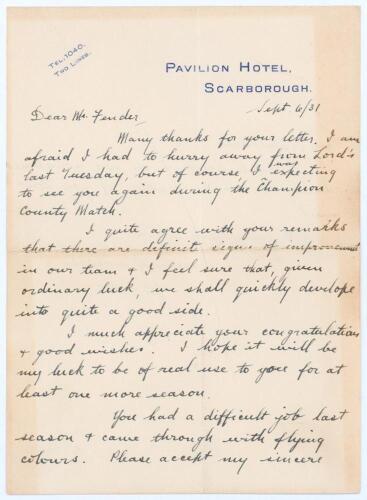 TEL. 1040.
TWO LINES.
PAVILION HOTEL,
SCARBOROUGH.
Sept 6/31
Dear Mr. Fender,
Many thanks for your letter. I am
afraid I had to hurry away from Lord's
last Tuesday, but of course I was expecting
to see you again during the Champion
County Match.
I quite agree with your remarks
that there are definit signs of improvement
in our team & I feel sure that, given
ordinary luck, we shall quickly develope
into quite a good side.
I much appreciate your congratulations
& good wishes. I hope it will be
my luck to be of real use to you for at
least one more season.
You had a difficult job last
season & came through with flying
colours. Please accept my sincere